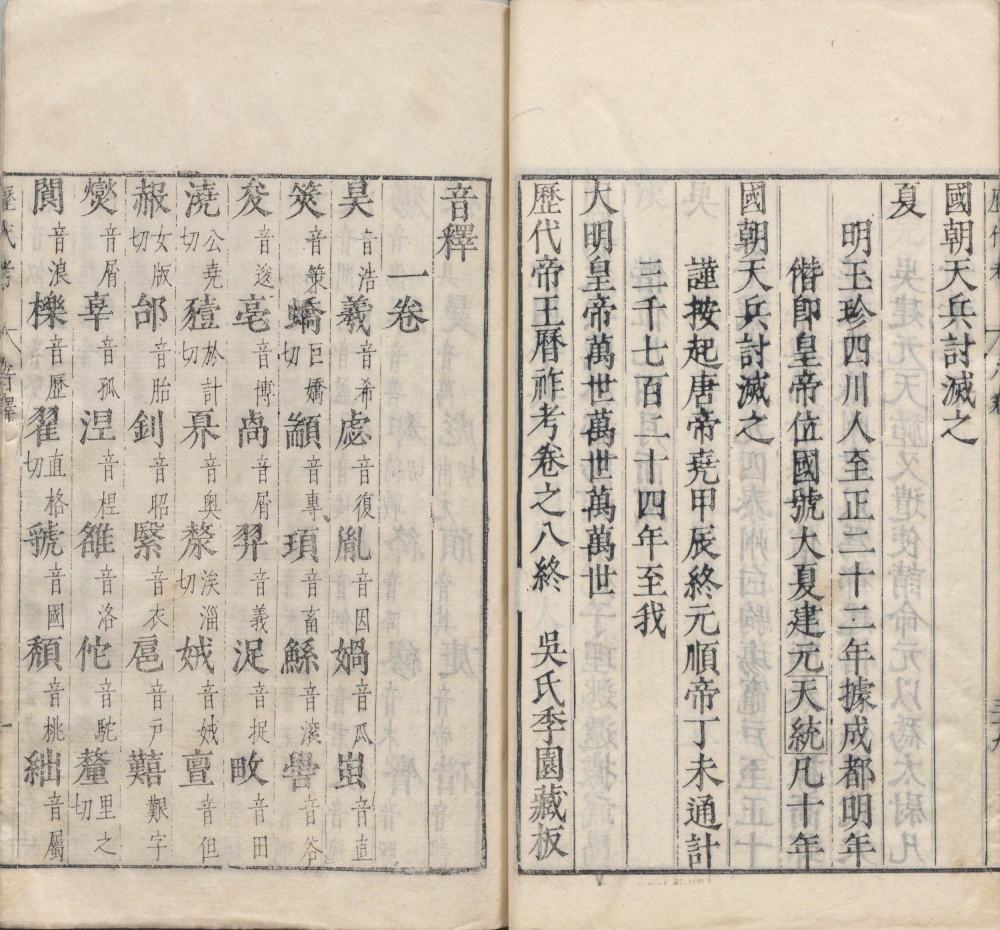 國朝天兵討滅之
夏
明玉珍四川人至正二十三年據成都明年
僭即皇帝位國號大夏建元天統凡十年
國朝天兵討滅之
謹按起唐帝堯甲辰終元順帝丁未通計
三千七百二十四年至我
大明皇帝萬世萬世萬萬世
歷代帝王曆祚考卷之八終 吳氏季園藏板
音釋
一卷
昊音浩羲音希虙音復胤音因媧音瓜蚩音直
筴音策蟜巨嬌切顓音專頊音畜鯀音滚嚳音谷
夋音逡亳音博卨音屑羿音義浞音捉畋音田
澆公堯切豷於計切奡音奥漦涘淄切娀音娀亶音但
赧女版切邰音胎釗音昭緊音衣扈音戶囏艱字
燮音屑辜音孤涅音桯雒音洛佗音駝釐里之切
閬音浪櫟音歷翟直格切虢音國頹音桃紬音屬